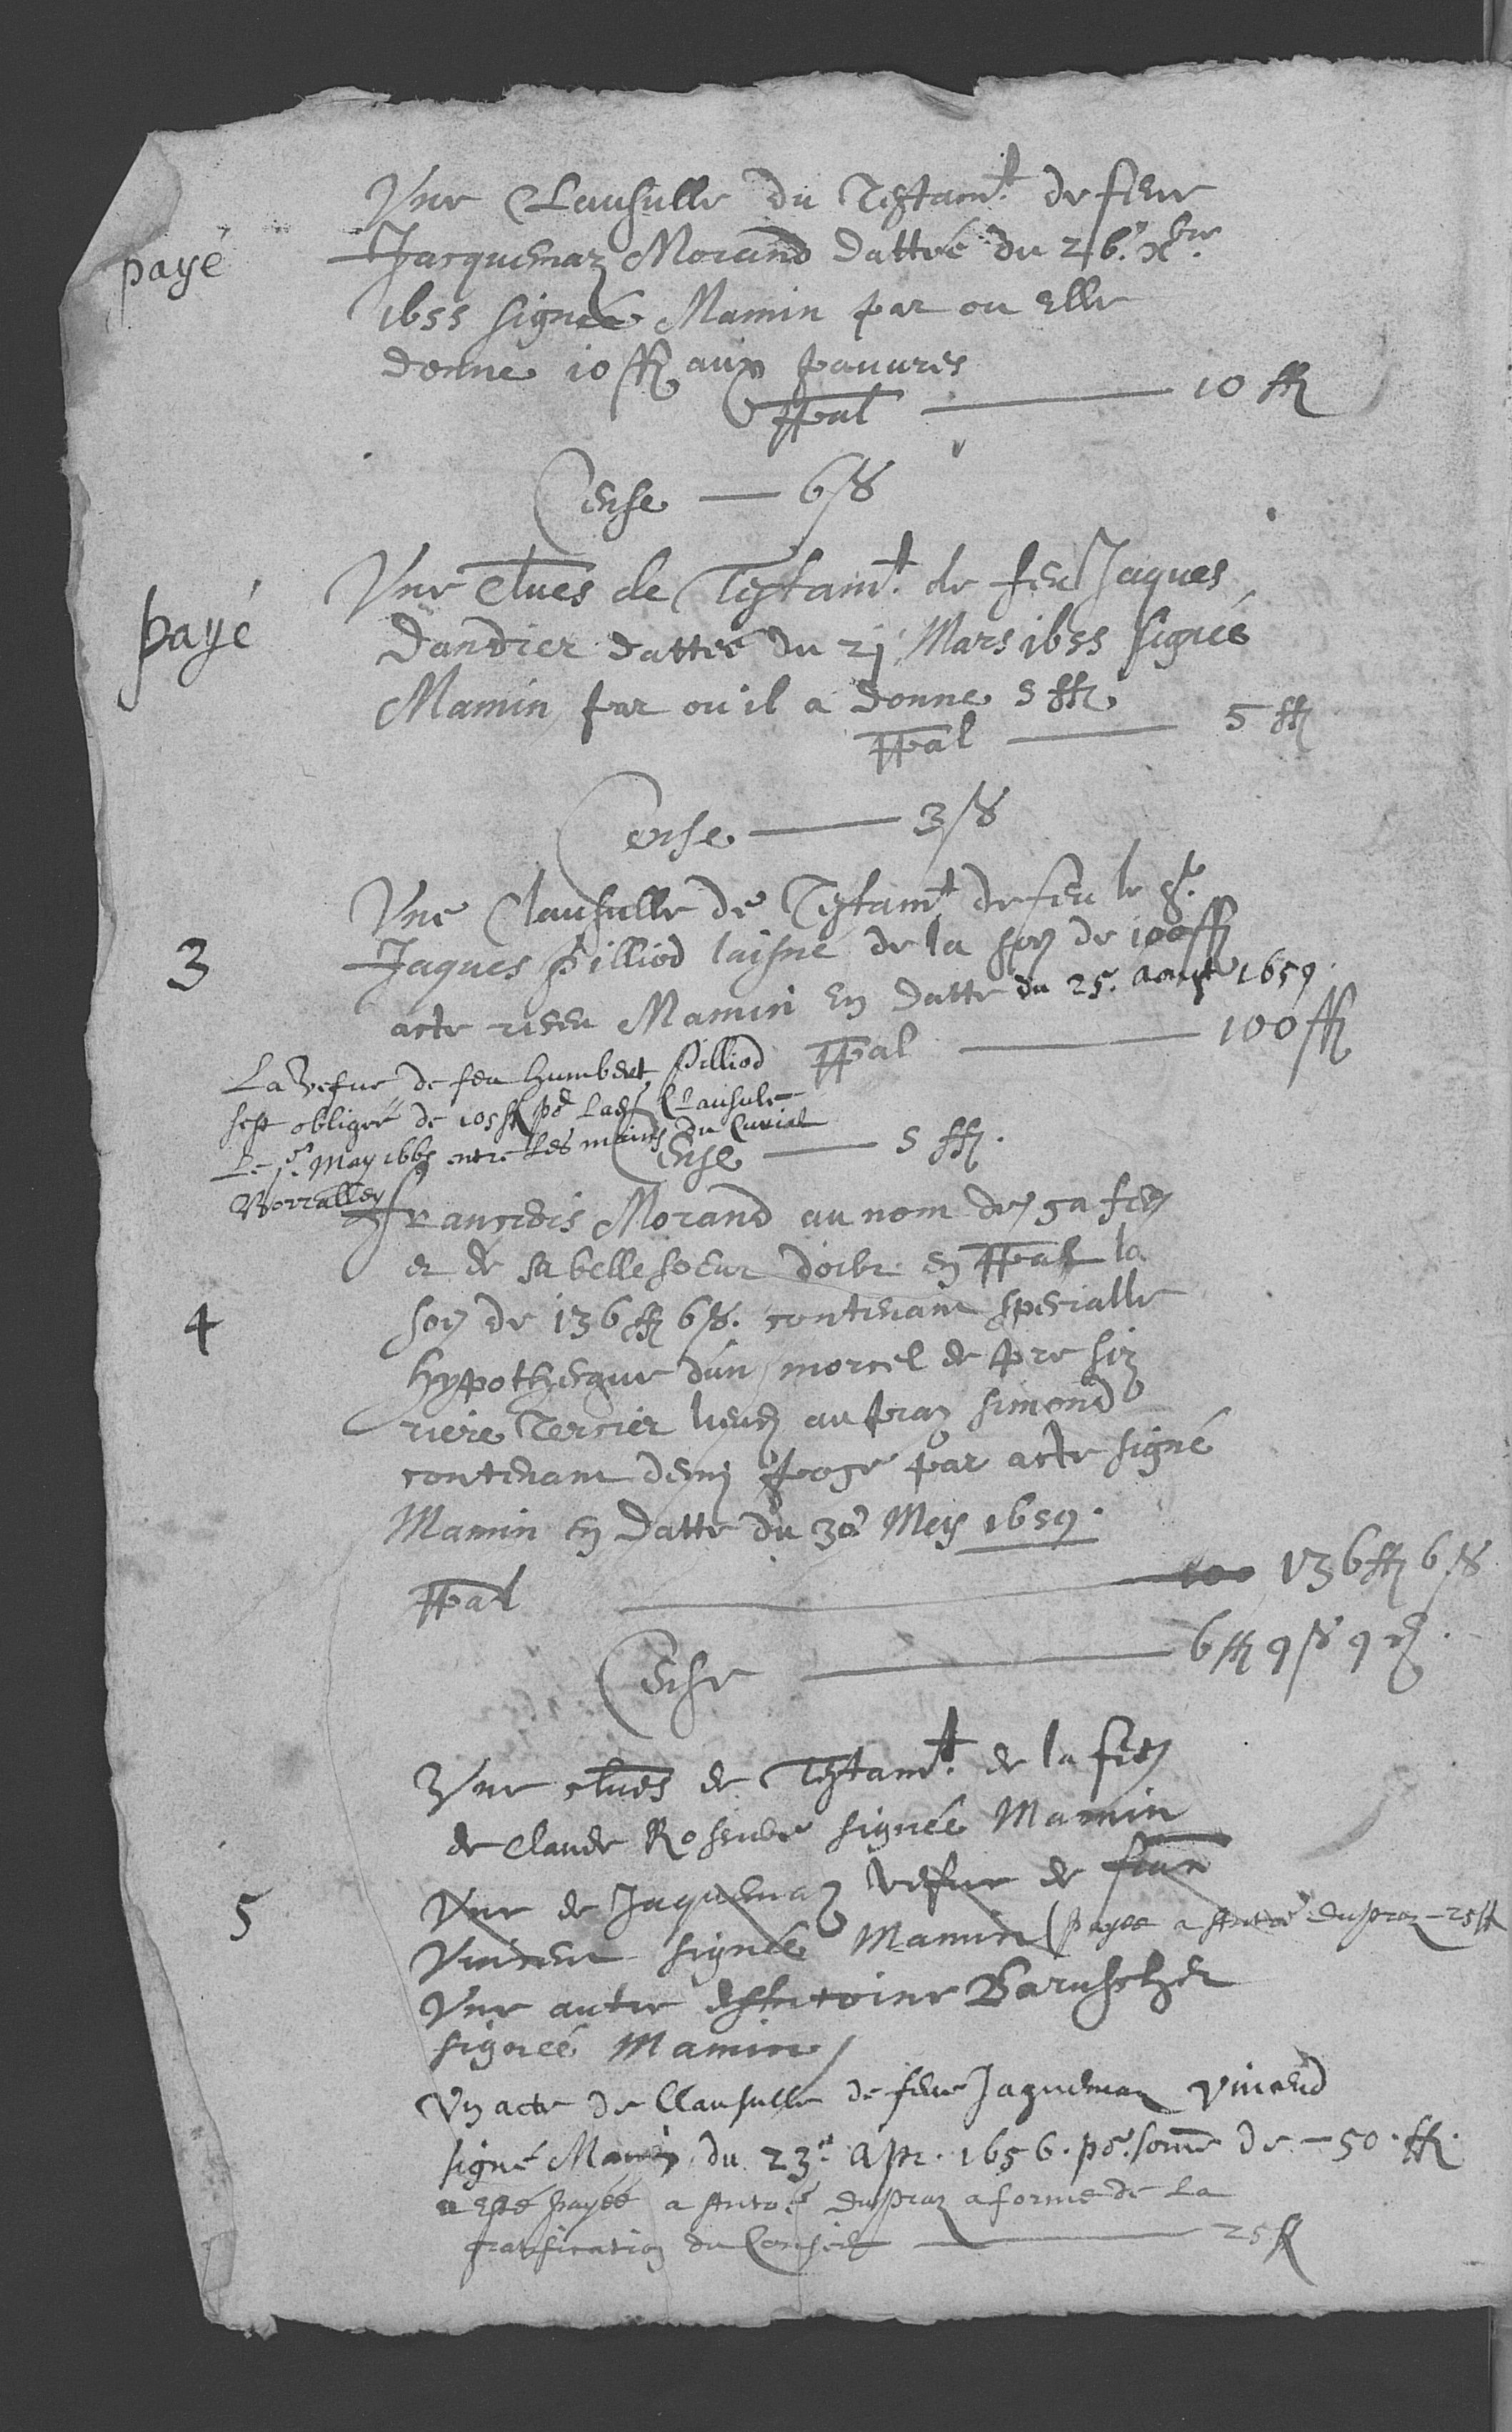 Vne Clausulle du Testamt. de feue
payé
Jacquemaz Morand dattée du 26. xbre.
1655 signée Mamin par ou elle
donne 10 ff aux pauures
ppal — 10 ff
Cense — 6 s
Vne clues de Testamt. de feu Jaques
payé
Dandier dattée du 21 Mars 1655 signée
Mamin par ou il a donne 5 ff
ppal — 5 ff
Cense — 3 s
Vne Clausulle de Testamt de feu le Sr.
3
Jaques Pilliod laisne de la som de 100 ff
acte receu Mamin en datte du 25. aoust 1659.
ppal — 100 ff
La vefue de feu Humbert Pilliod
sest obligée de 105 ff pr ladt Clausule
Le may entre les mains du Curial
Cense — 5 ff.
francois Morand au nom de sa fem
et de sa belle soeur doibt en ppal la
4
som de 136 ff 6 s. contenant specialle
hypothecque dun morcel de pre siz
riere Tercier lieud au praz simond
contenant demj pose par acte signé
Mamin en datte du 30e Mey 1659.
ppal — 100 136 ff 6 s
Cense — 6 ff 9 s 9 d.
Vne clues de Testamt. de la fem
de Claude signée Mamin
5
Vne de Jaquemaz vefue de
Vincent signée Mamin (payee a Antoe dupraz – 25 ff
Vne autre Antoine
signée Mamin
Vn acte de Clausulle de feue Jaquemaz Vincend
signé Mamin du 23e. Apr. 1656. pr. somme de – 50. ff.
a esté payée a Antoe dupraz a forme de la
gratification du Conseil — 25 ff